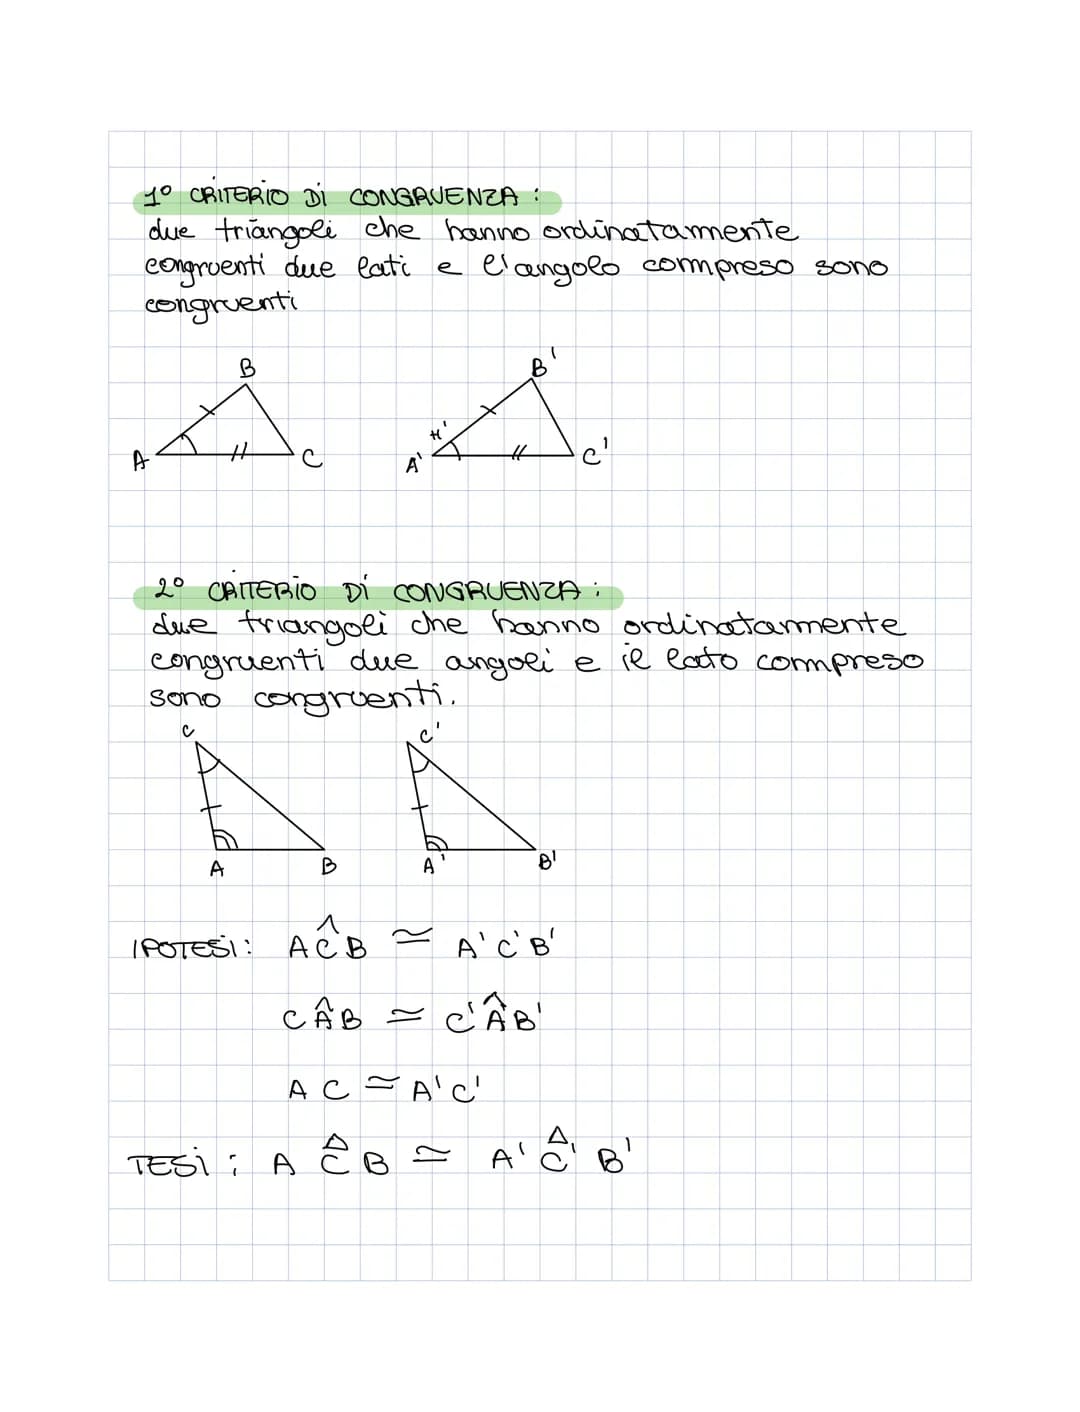 1° CRITERIO DI CONGRUENZA :
due triangoli che hanno ordinatamente
congruenti due lati e l'angolo compreso sono
congruenti
B B'
H'
A C A' C'
2° CRITERIO DI CONGRUENZA :
due triangoli che hanno ordinatamente
congruenti due angoli e il lato compreso
sono congruenti.
C C'
A B A' B'
IPOTESI: AĈB ≅ A'C'B'
CÂB ≅ C'ÂB'
AC ≅ A'C'
TESI : A Ĉ B ≅ A' Ĉ' B'